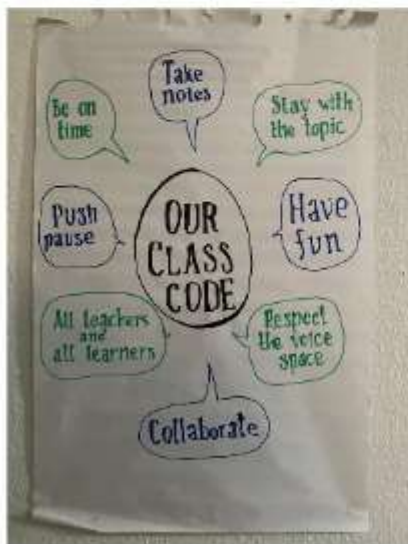 Take
notes
Be on
time
Stay with
the topic
Push
pause
OUR
CLASS
CODE
Have
fun
All teachers
and
all learners
Respect
the voice
space
Collaborate